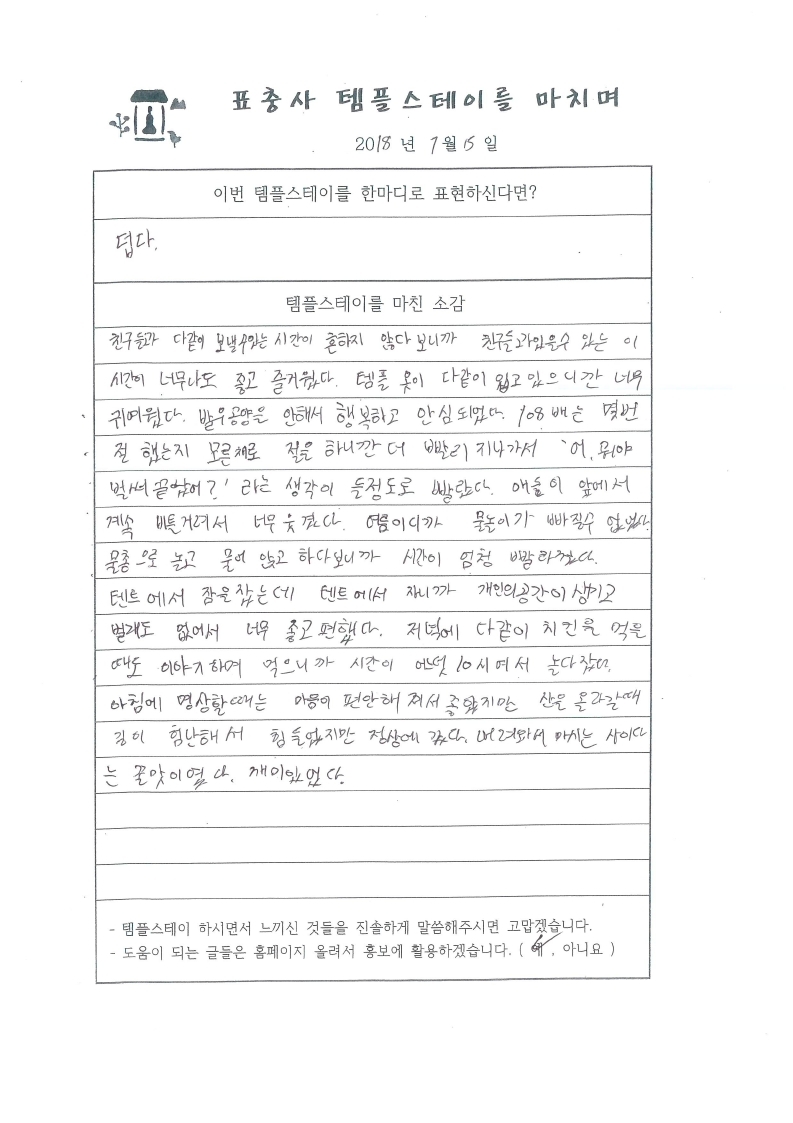 표충사 템플스테이를 마치며
2018 년 7 월 15 일
이번 템플스테이를 한마디로 표현하신다면?
덥다.
템플스테이를 마친 소감
친구들과 다같이 보낼수있는 시간이 흔하지 않다 보니까 친구들과있을수 있는 이
시간이 너무나도 좋고 즐거웠다. 템플 옷이 다같이 입고 있으니깐 너무
귀여웠다. 발우공양을 안해서 행복하고 안심 되었다. 108 배는 몇번
절 했는지 모른채로 절을 하니깐 더 빨리 지나가서 '어, 뭐야
벌써 끝났어?' 라는 생각이 들정도로 빨랐다. 애들이 앞에서
계속 비틀거려서 너무 웃겼다. 여름이니까 물놀이가 빠질수 없었다.
물총으로 놀고 물에 앉고 하다보니까 시간이 엄청 빨라졌다.
텐트에서 잠을 잤는데 텐트에서 자니까 개인의공간이 생기고
벌레도 없어서 너무 좋고편했다. 저녁에 다같이 치킨을 먹을
때도 이야기하며 먹으니까 시간이 어느덧 10시여서 놀다잤다.
아침에 명상할때는 마음이 편안해 져서 좋았지만 산을 올라갈때
길이 험난해서 힘들었지만 정상에 갔다. 내려와서 마시는 사이다
는 꿀맛이였다. 재미있었다.
- 템플스테이 하시면서 느끼신 것들을 진솔하게 말씀해주시면 고맙겠습니다.
- 도움이 되는 글들은 홈페이지 올려서 홍보에 활용하겠습니다. ( 예 , 아니요 )